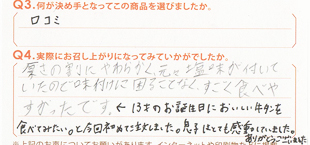 Q3.何が決め手となってこの商品を選びましたか。
口コミ
Q4.実際にお召し上がりになってみていかがでしたか。
厚さの割にやわらかく、元々塩味が付いて
いたので味付けに困ることなく、すごく食べや
すかったです。←13才のお誕生日においしい牛タンを
食べてみたい。と今回初めて注文しました。息子にとても感動していました。
ありがとうございました